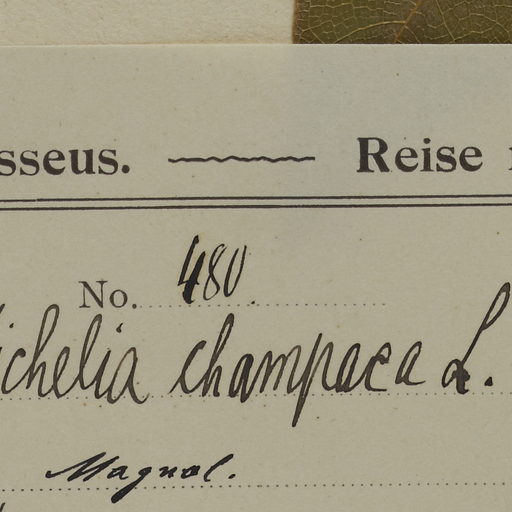 sseus. Reise
No. 480.
ichelia champaca L.
Magnol.